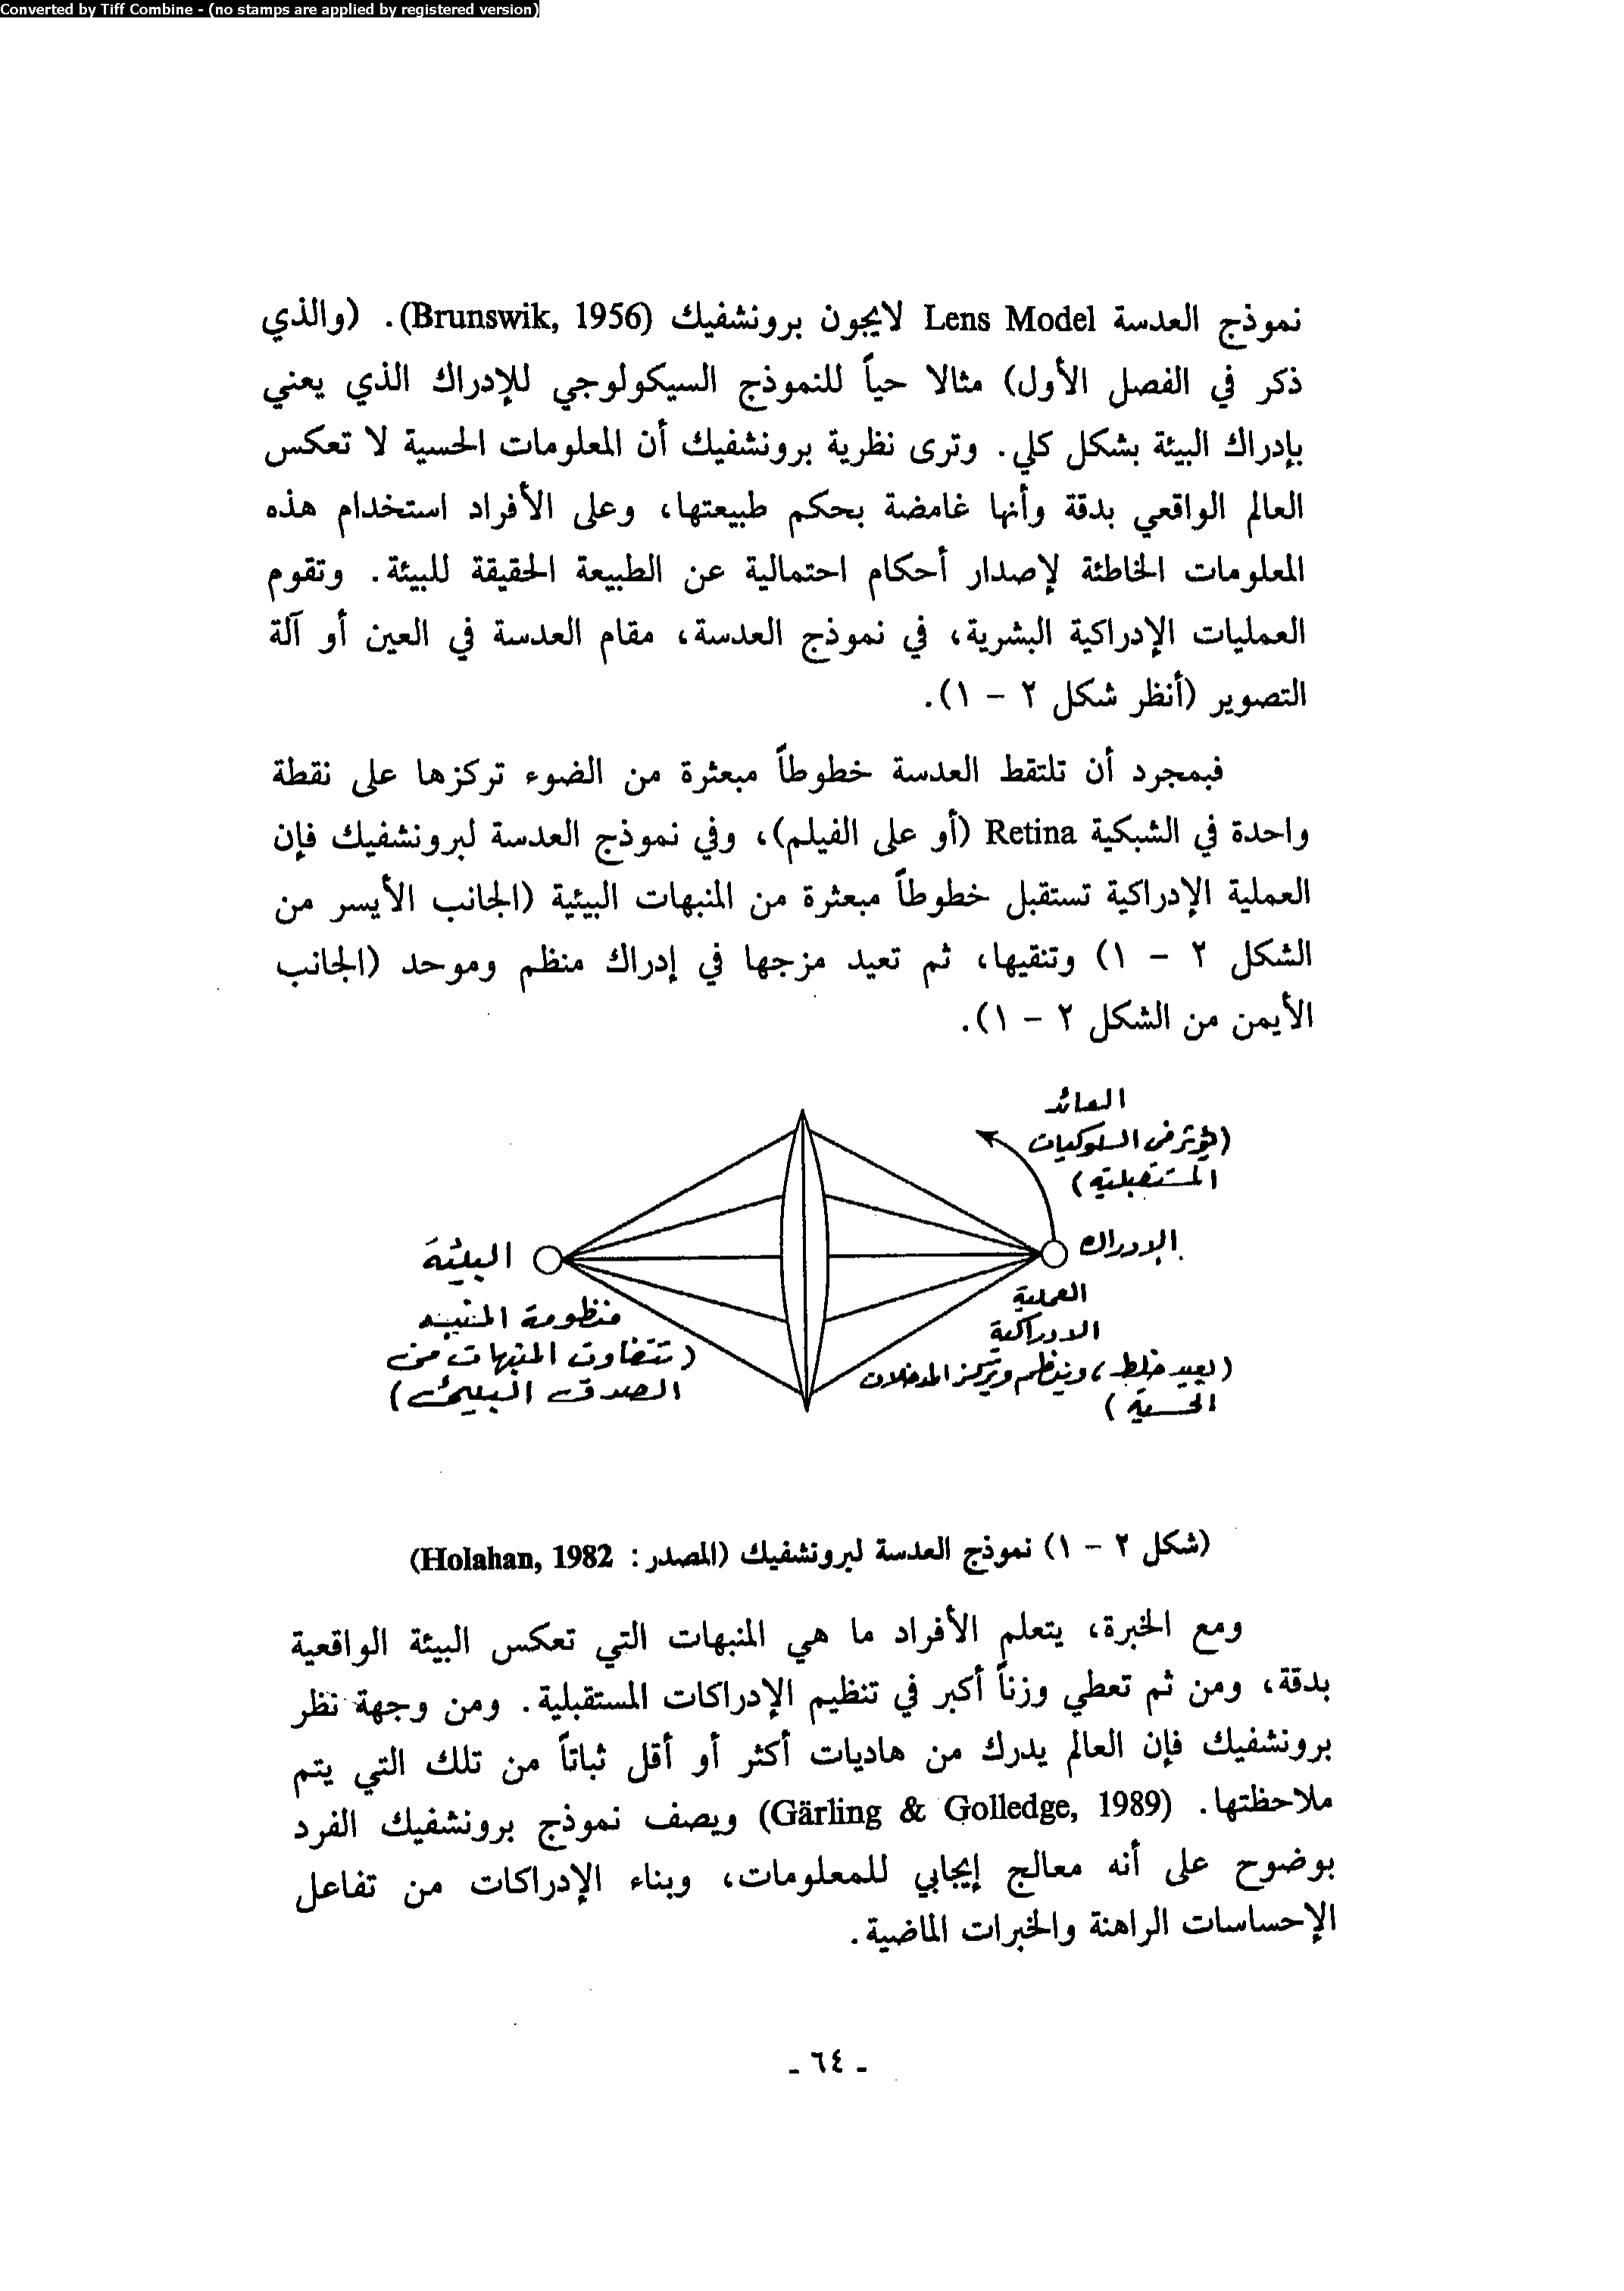 Converted by Tiff Combine - (no stamps are applied by registered version)
نموذج العدسة Lens Model لايجون برونشفيك (Brunswik, 1956). (والذي
ذكر في الفصل الأول) مثالا حياً للنموذج السيكولوجي للإدراك الذي يعني
بإدراك البيئة بشكل كلي. وترى نظرية برونشفيك أن المعلومات الحسية لا تعكس
العالم الواقعي بدقة وأنها غامضة بحكم طبيعتها، وعلى الأفراد استخدام هذه
المعلومات الخاطئة لإصدار أحكام احتمالية عن الطبيعة الحقيقة للبيئة. وتقوم
العمليات الإدراكية البشرية، في نموذج العدسة، مقام العدسة في العين أو آلة
التصوير (أنظر شكل ٢ - ١).
فبمجرد أن تلتقط العدسة خطوطاً مبعثرة من الضوء تركزها على نقطة
واحدة في الشبكية Retina (أو على الفيلم)، وفي نموذج العدسة لبرونشفيك فإن
العملية الإدراكية تستقبل خطوطاً مبعثرة من المنبهات البيئية (الجانب الأيسر من
الشكل ٢ - ١) وتنقيها، ثم تعيد مزجها في إدراك منظم وموحد (الجانب
الأيمن من الشكل ٢ - ١).
العائد
(يؤثر في السلوكيات
المستقبلية)
الإدراك
البيئة
العملية
الادراكية
(يعيد خلط، وينظم ويركز المدخلات
الحسية)
منظومة المنبه
(تتفاوت المنبهات من
الصدق البيئي)
(شكل ٢ - ١) نموذج العدسة لبرونشفيك (المصدر: Holahan, 1982)
ومع الخبرة، يتعلم الأفراد ما هي المنبهات التي تعكس البيئة الواقعية
بدقة، ومن ثم تعطي وزناً أكبر في تنظيم الإدراكات المستقبلية. ومن وجهة نظر
برونشفيك فإن العالم يدرك من هاديات أكثر أو أقل ثباتاً من تلك التي يتم
ملاحظتها. (Gärling & Golledge, 1989) ويصف نموذج برونشفيك الفرد
بوضوح على أنه معالج إيجابي للمعلومات، وبناء الإدراكات من تفاعل
الإحساسات الراهنة والخبرات الماضية.
- ٦٤ -